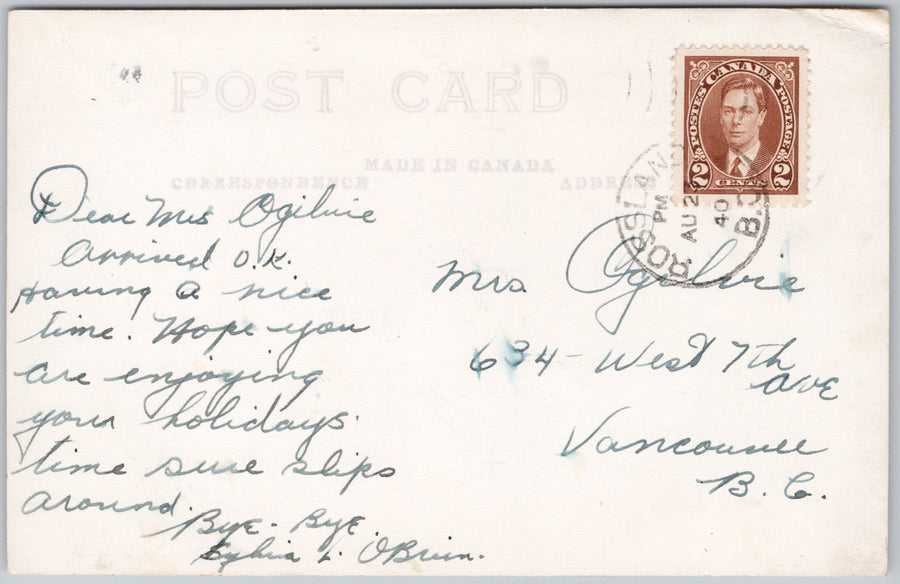 POST CARD
MADE IN CANADA
CORRESPONDENCE
ADDRESS
POSTES CANADA POSTAGE
2 CENTS 2
ROSSLAND
PM
AU 23
40
B.C.
Dear Mrs Ogilvie
Arrived O.K.
Having a nice
time. Hope you
are enjoying
your holidays.
time sure slips
around.
Bye-Bye
Sylvia L. OBrien.
Mrs. Ogilvie
634- West 7th
Ave
Vancouver
B. C.